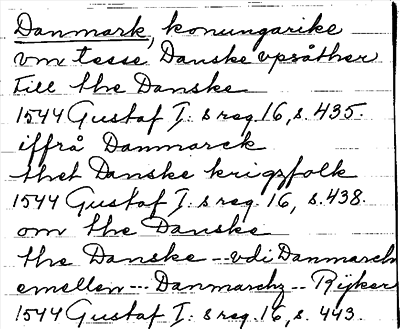 Danmark, konungarike
vm tesse Danske vpsåther
till the Danske
1544 Gustaf I: s reg. 16, s. 435.
iffrå Danmarck
thet Danske krigzfolk
1544 Gustaf I: s reg. 16, s. 438.
om the Danske
the Danske -- vdi Danmarch
emellen --- Danmarchz -- Rijker
1544 Gustaf I: s reg. 16, s. 443.